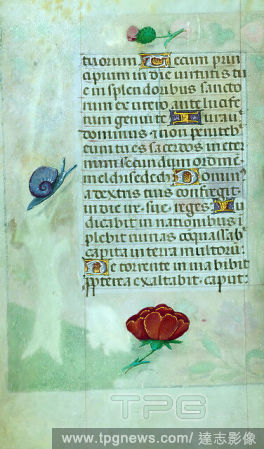 tuorum Tecum prin
cipium in die virtutis tu
e in splendoribus sancto
rum ex utero ante lucife
rum genui te Iurau
dominus ⁊ non peniteb
eum tu es sacerdos in eter
num secundum ordine
melchisedech Domin
a dextris tuis confregit
in die ire sue reges Iu
dicabit in nationibus i
plebit ruinas conquassab
capita in terra multoru
De torrente in uia bibit
propterea exaltabit caput
TPG
www.tpgnews.com / 達志影像